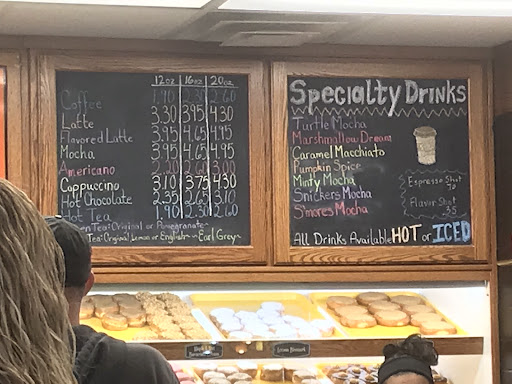 12oz 16oz 20oz
Coffee 1.90 2.30 2.60
Latte 3.30 3.95 4.30
Flavored Latte 3.95 4.65 4.95
Mocha 3.95 4.65 4.95
Americano 2.20 2.60 3.00
Cappuccino 3.10 3.75 4.30
Hot Chocolate 2.35 2.65 3.10
Hot Tea 1.90 2.30 2.60
Tea: Original or Pomegranate~
Tea: Original Lemon or English~ ~Earl Grey~
Specialty Drinks
Turtle Mocha
Marshmallow Dream
Caramel Macchiato
Pumpkin Spice
Minty Mocha
Snickers Mocha
S'mores Mocha
Espresso Shot
Flavor Shot
.35
All Drinks Available HOT or ICED